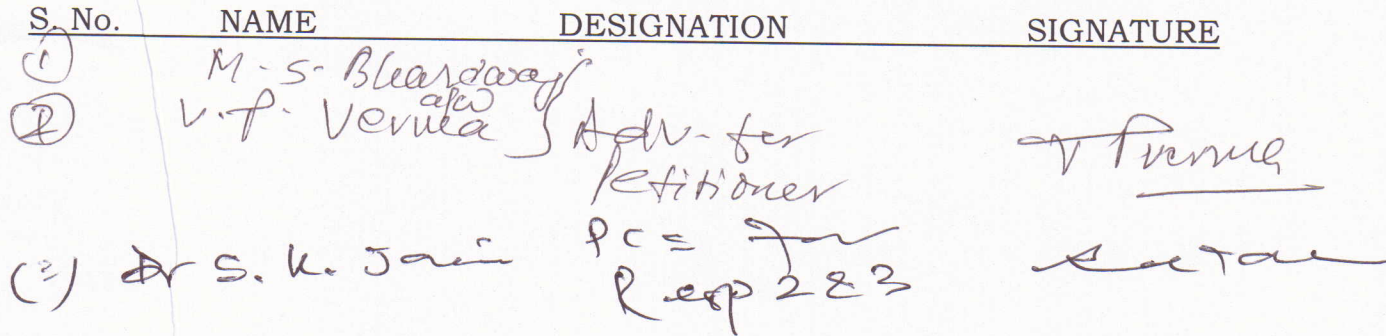 S. No. NAME DESIGNATION SIGNATURE
(1) M-S- Bhardwaj
(2) V.P. Verma } Adv- for
Petitioner
(2) Dr S. K. Jain
Resp 2 & 3